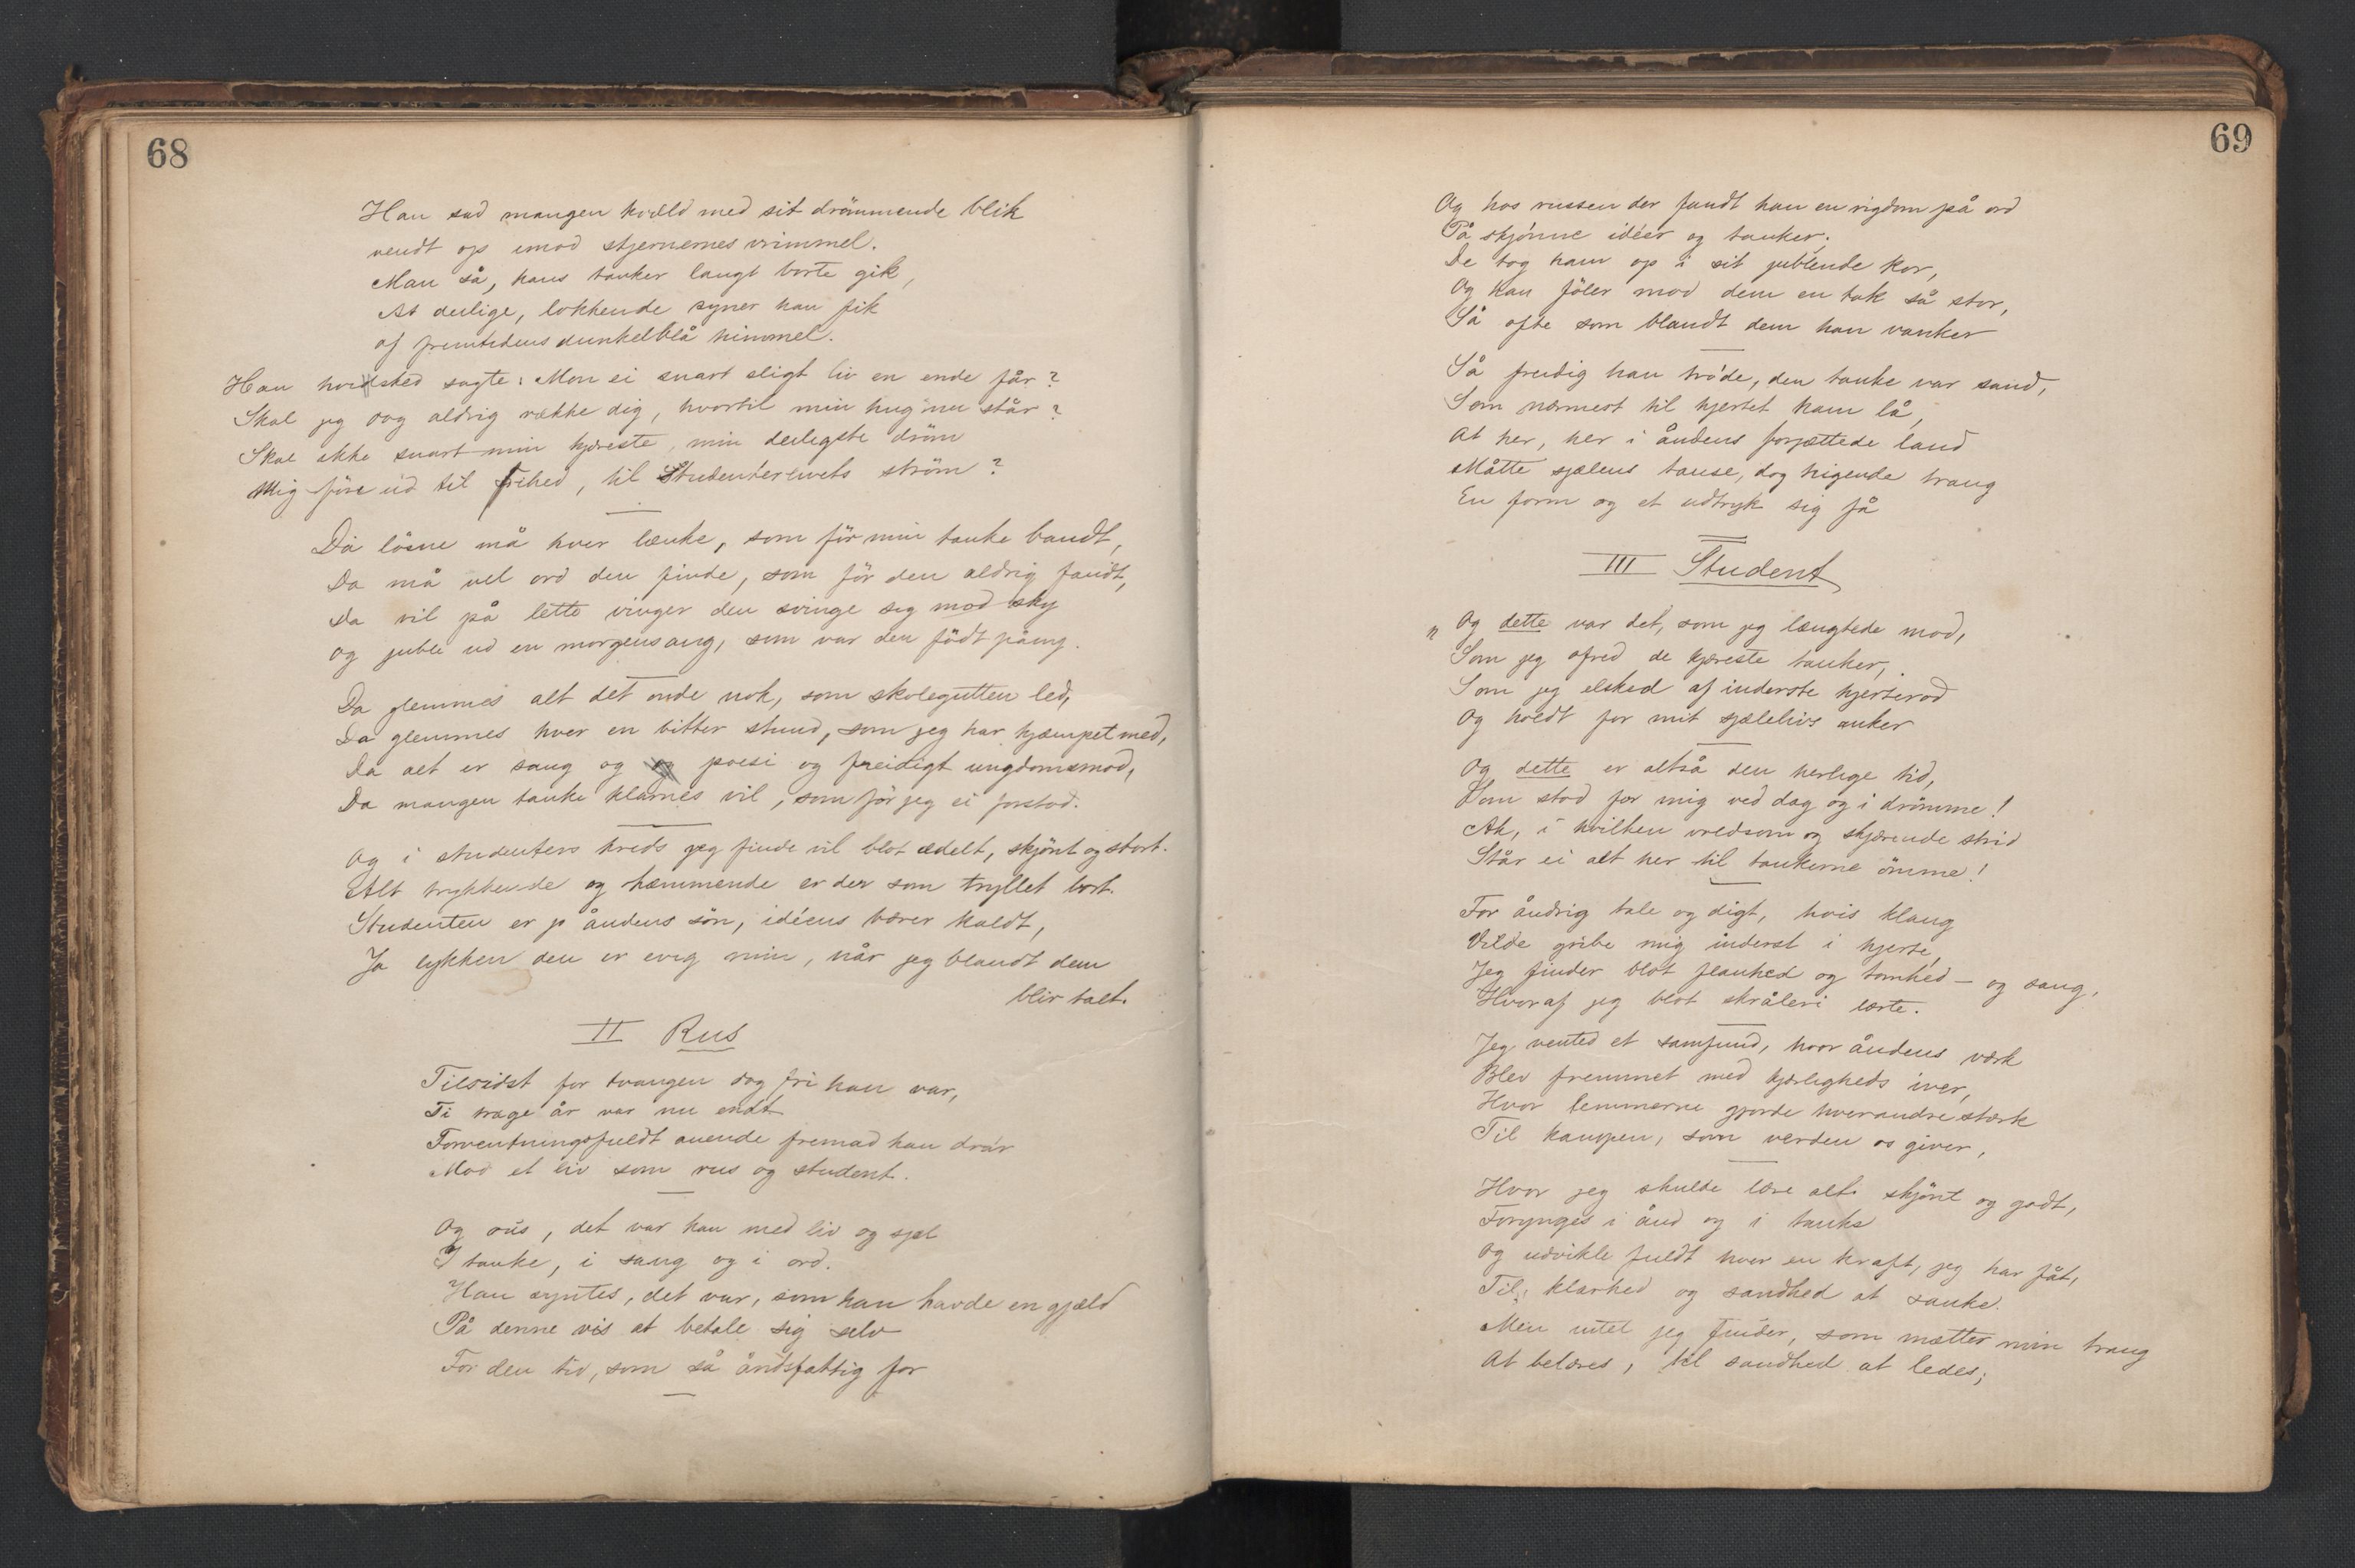 68
Han sad mangen kvæld med sit drömmende blik
vendt op imod stjernernes vrimmel.
Man så, hans tanker langt borte gik,
At deilige, lokkende syner han fik
af fremtidens dunkelblå himmel.
Han hvidsked sagte: Mon ei snart sligt liv en ende får?
Skal jeg dog aldrig række dig, hvortil min hug nu står?
Skal ikke snart min kjæreste, min deiligste dröm
Mig före ud til Frihed, til Studenterlivets ström?
Da lösne må hver lænke, som för min tanke bandt,
Da må vel ord den finde, som för den aldrig fandt,
Da vil på lette vinger den svinge sig mod sky
og juble ud en morgensang, som var den födt påny.
Da glemmes alt det onde nok, som skolegutten led,
Da glemmes hver en bitter stund, som jeg har kjæmpet med,
Da alt er sang og poesi og freidigt ungdomsmod,
Da mangen tanke klarnes vil, som för jeg ei forstod.
Og i studenters kreds jeg finde vil blot ædelt, skjönt og stort.
Alt trykkende og hæmmende er der som tryllet bort.
Studenten er jo åndens sön, idéens bærer kaldt,
Ja lykken den er evig min, når jeg blandt dem
blir talt.
II Rus
Tilsidst for tvangen dog fri han var,
Ti trage år var nu endt
Forventningsfuldt anende fremad han drar
Mod et liv som rus og student.
Og rus, det var han med liv og sjæl
I tanke, i sang og i ord.
Han syntes, det var, som han havde en gjæld
På denne vis at betale sig selv
For den tid, som så åndsfattig for
69
Og hos russen der fandt han en rigdom på ord
På skjönne idéer og tanker;
De tog ham op i sit jublende kor,
Og han föler mod dem en tak så stor,
Så ofte som blandt dem han vanker
Så freidig han tro'de, den tanke var sand,
Som nærmest til hjertet ham lå,
At her, her i åndens forjættede land
Måtte sjælens tause, dog higende trang
En form og et udtryk sig få
III Student
"Og dette var det, som jeg længtede mod,
Som jeg ofred de kjæreste tanker,
Som jeg elsked af inderste hjerterod
Og holdt for mit sjælelivs anker
Og dette er altså den herlige tid,
Som stod for mig ved dag og i drömme!
Ak, i hvilken voldsom og skjærende strid
Står ei alt her til tankerne ömme!
For åndrig tale og digt, hvis klang
Vilde gribe mig inderst i hjerte,
Jeg finder blot flauhed og tomhed – og sang,
Hvoraf jeg blot skråleri lærte.
Jeg vented et samfund, hvor åndens værk
Blev fremmet med kjærligheds iver,
Hvor lemmerne gjorde hverandre stærk
Til kampen, som verden os giver,
Hvor jeg skulde lære alt skjönt og godt,
Forynges i ånd og i tanke
Og udvikle fuldt hver en kraft, jeg har fåt,
Til klarhed og sandhed at sanke.
Men intet jeg finder, som mætter min trang
At belæres, til sandhed at ledes;